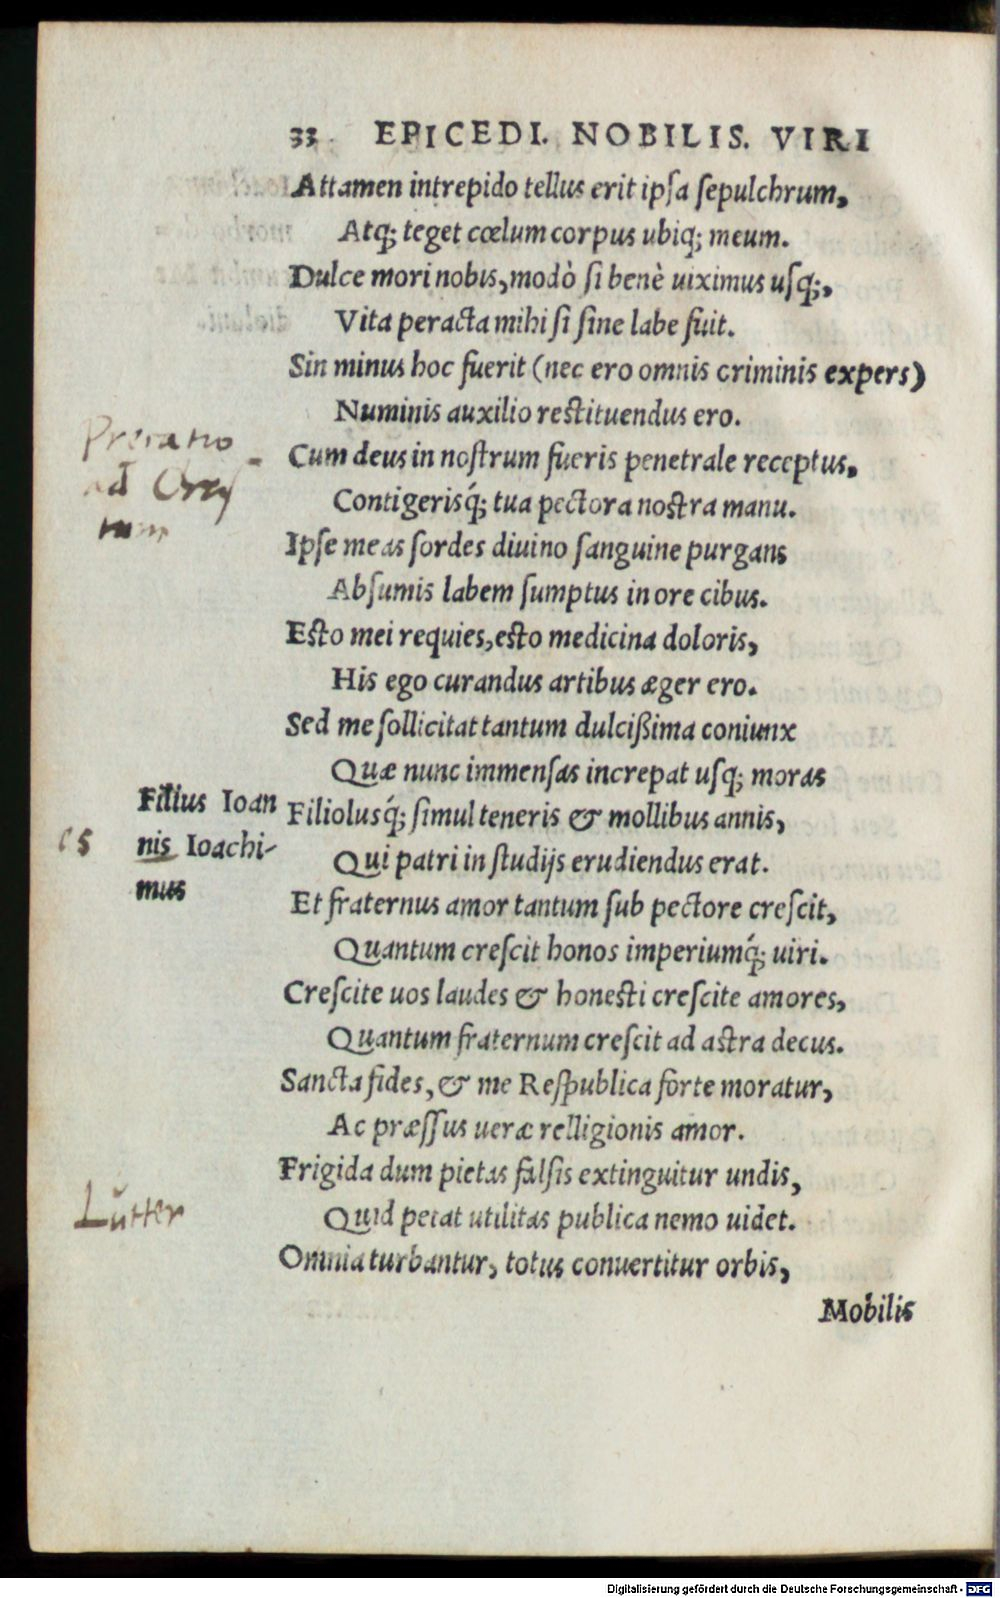 33 EPICEDI. NOBILIS. VIRI
Attamen intrepido tellus erit ipſa ſepulchrum,
Atq; teget cœlum corpus ubiq; meum.
Dulce mori nobis, modò ſi benè uiximus uſq;,
Vita peracta mihi ſi ſine labe fuit.
Sin minus hoc fuerit (nec ero omnis criminis expers)
Numinis auxilio reſtituendus ero.
Precatio
ad
Cum deus in noſtrum fueris penetrale receptus,
Contigerisq́; tua pectora noſtra manu.
Ipſe meas ſordes diuino ſanguine purgans
Abſumis labem ſumptus in ore cibus.
Eſto mei requies, eſto medicina doloris,
His ego curandus artibus æger ero.
Sed me ſollicitat tantum dulcißima coniunx
Quæ nunc immenſas increpat uſq; moras
Filius Ioan
es nis Ioachi-
mus
Filiolusq́; ſimul teneris & mollibus annis,
Qui patri in ſtudijs erudiendus erat.
Et fraternus amor tantum ſub pectore creſcit,
Quantum creſcit honos imperiumq́; uiri.
Creſcite uos laudes & honeſti creſcite amores,
Quantum fraternum creſcit ad aſtra decus.
Sancta fides, & me Reſpublica forte moratur,
Ac præſſus ueræ relligionis amor.
Frigida dum pietas falſis extinguitur undis,
Lŭtter
Quid petat utilitas publica nemo uidet.
Omnia turbantur, totus conuertitur orbis,
Mobilis
Digitalisierung gefördert durch die Deutsche Forschungsgemeinschaft - DFG